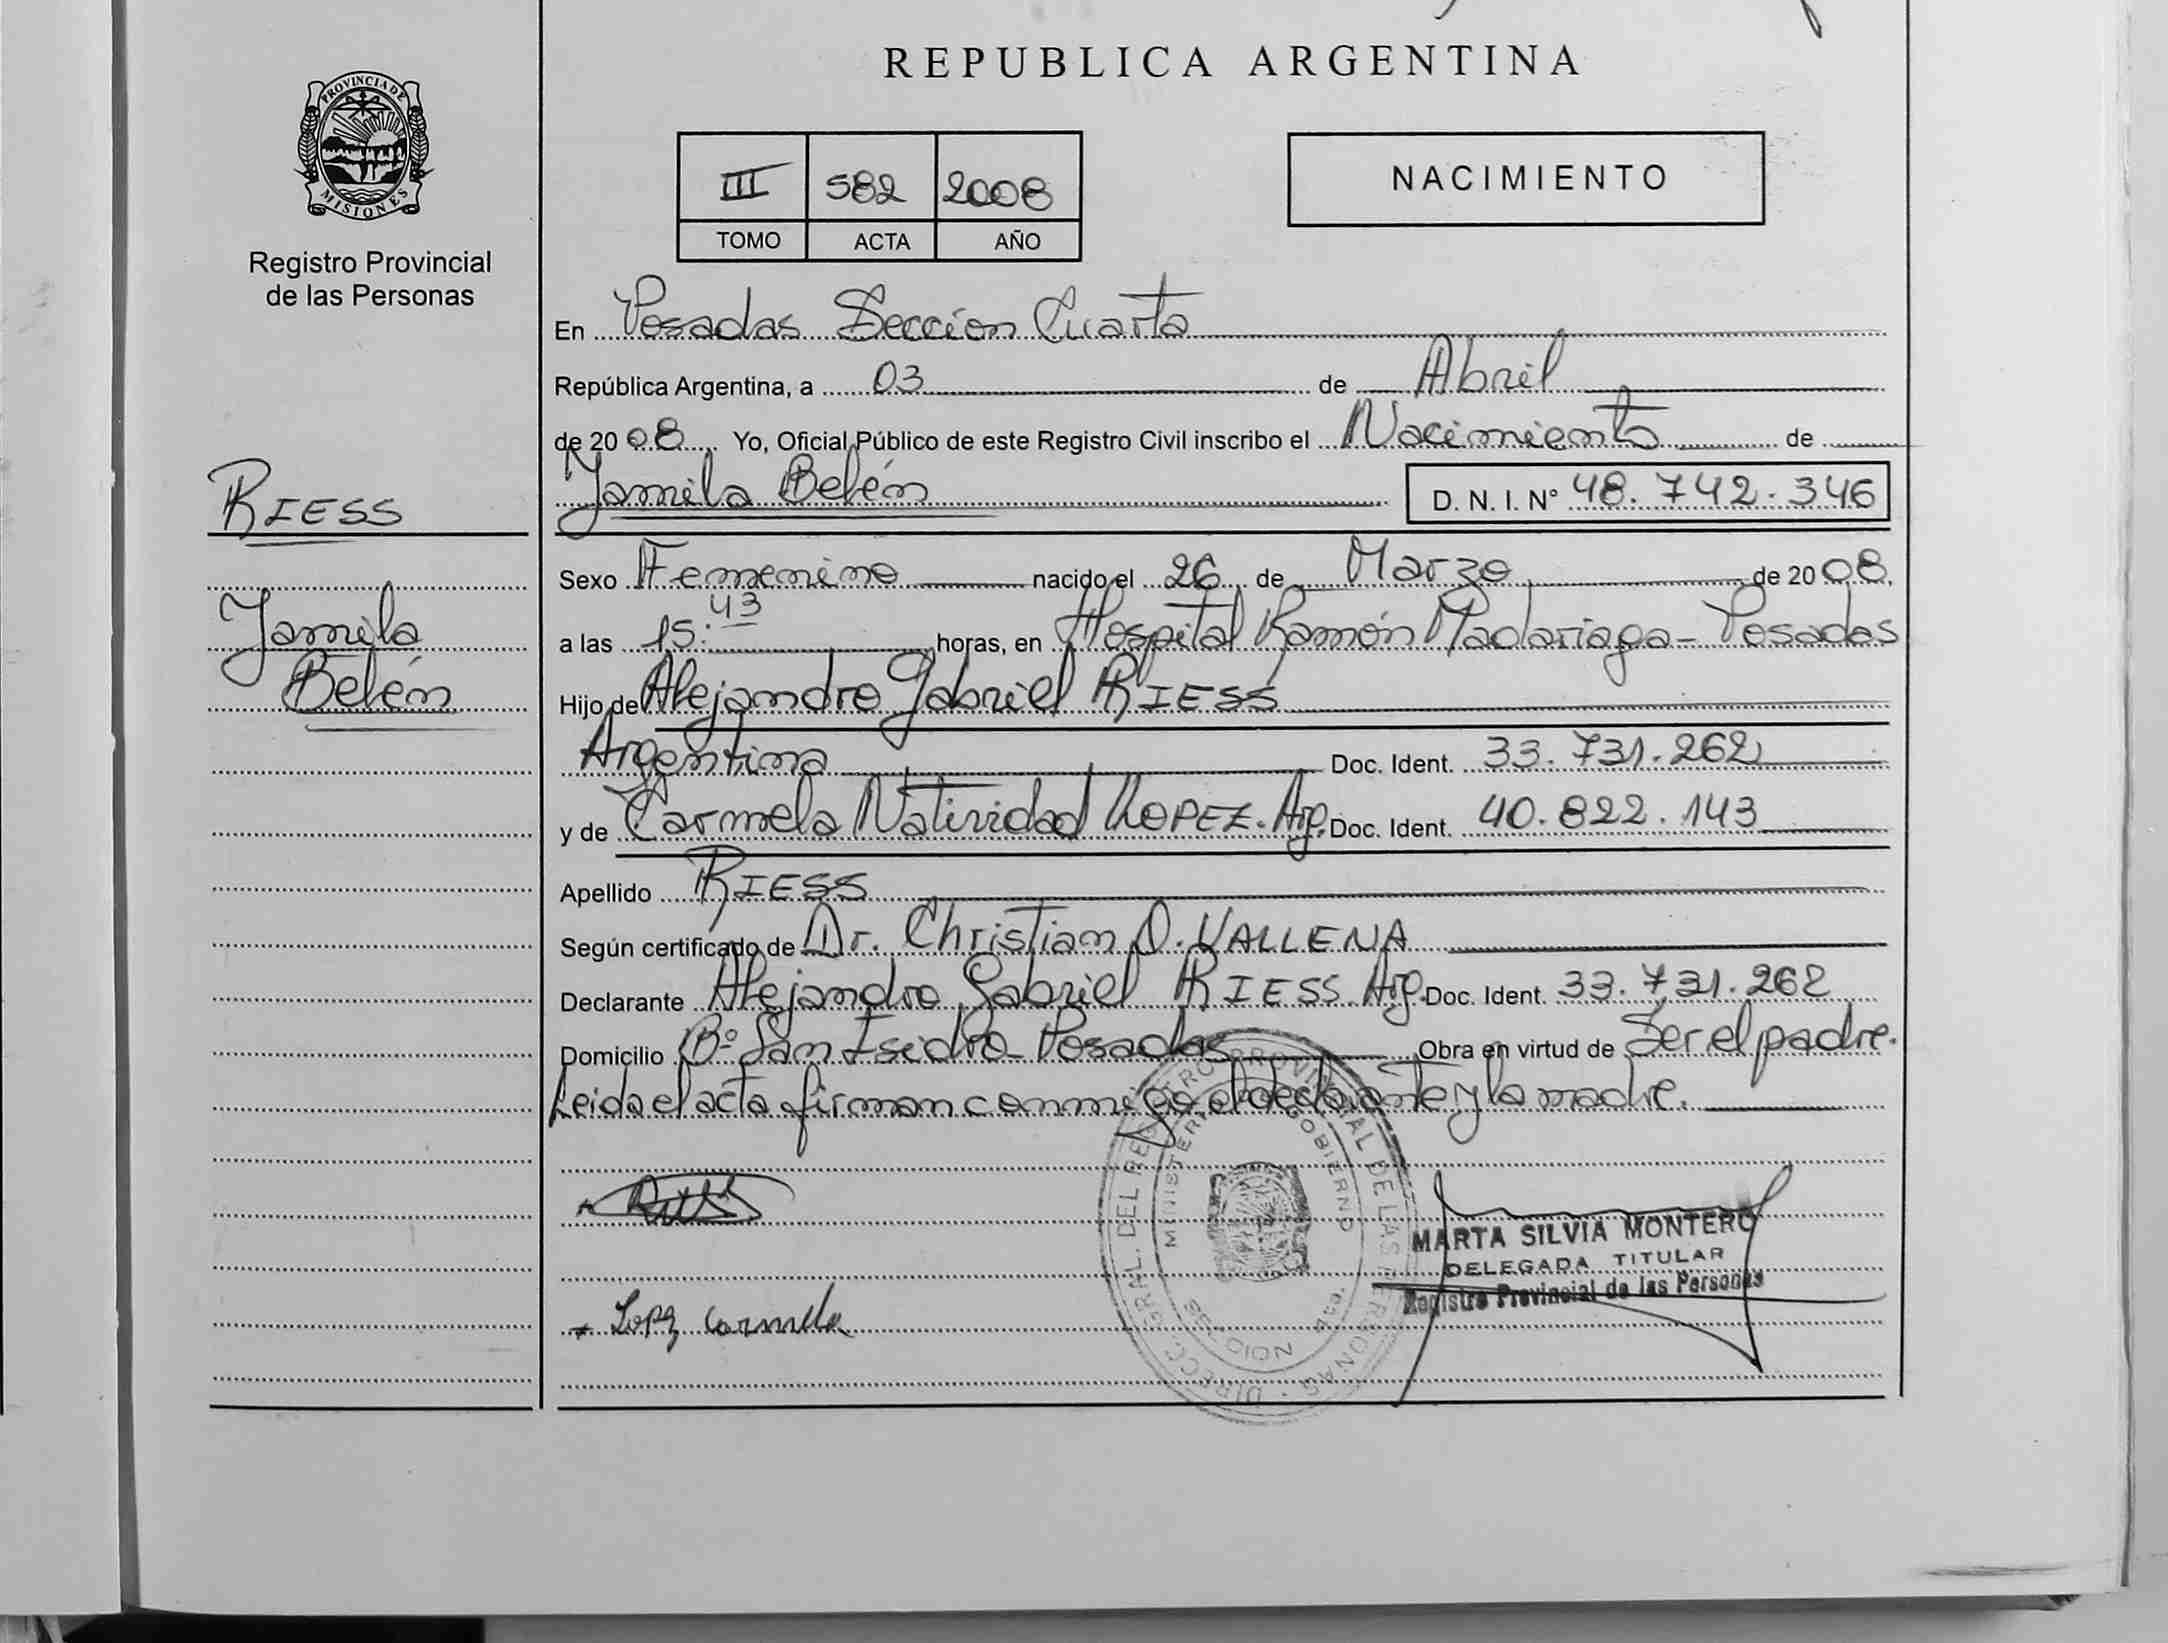 REPUBLICA ARGENTINA
PROVINCIA DE
MISIONES
Registro Provincial
de las Personas
III 582 2008
TOMO ACTA AÑO
NACIMIENTO
En Posadas Sección Cuarta
República Argentina, a 03 de Abril
de 2008 Yo, Oficial Público de este Registro Civil inscribo el Nacimiento de
RIESS
Yamila Belén D. N. I. Nº 48.742.346
Sexo Femenino nacido el 26 de Marzo de 2008.
Yamila
Belén
a las 15:43 horas, en Hospital Ramón Madariaga - Posadas
Hijo de Alejandro Gabriel RIESS
Argentina Doc. Ident. 33.731.262
y de Carmela Natividad LOPEZ. Arg. Doc. Ident. 40.822.143
Apellido RIESS
Según certificado de Dr. Christian D. VALLENA
Declarante Alejandro Gabriel RIESS Arg. Doc. Ident. 33.731.262
Domicilio Bº San Isidro Posadas Obra en virtud de Ser el padre.
Leida el acta firman conmigo el declarante y la madre.
DIRECC. GRAL. DEL REGISTRO PROVINCIAL DE LAS PERSONAS
MINISTERIO GOBIERNO
MARTA SILVIA MONTERO
DELEGADA TITULAR
Registro Provincial de las Personas
Lopez Carmela